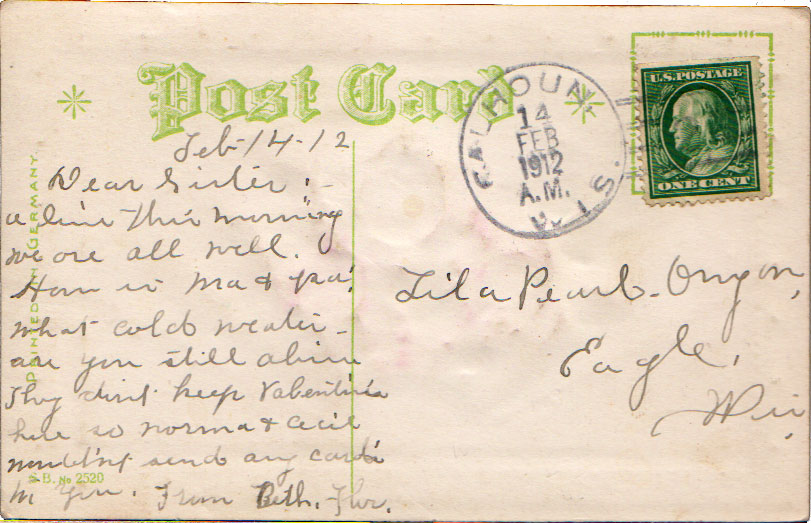 Post Card
CALHOUN
14
FEB
1912
A.M.
WIS.
U.S. POSTAGE
ONE CENT
PRINTED IN GERMANY
Feb-14-12
Dear Sister: -
a line this morning
we are all well.
How is ma & pa?
what cold weather -
are you still alive
They dint keep Valentines
here so norma & Cecil
wouldn't send any cards
to you. From Beth.
S.B. No 2520
Lila Pearl
Eagle,
Wis,